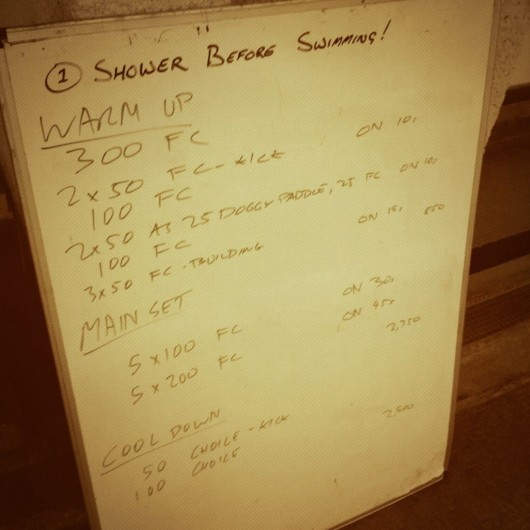 ① SHOWER BEFORE SWIMMING!
WARM UP
300 FC
2x50 FC-KICK ON 10s
100 FC
2x50 AS 25 DOGGY PADDLE, 25 FC ON 10s
100 FC
3x50 FC-BUILDING ON 15s 850
MAIN SET
5x100 FC ON 30s
5x200 FC ON 45s
2,350
COOL DOWN
50 CHOICE-KICK
100 CHOICE 2,500